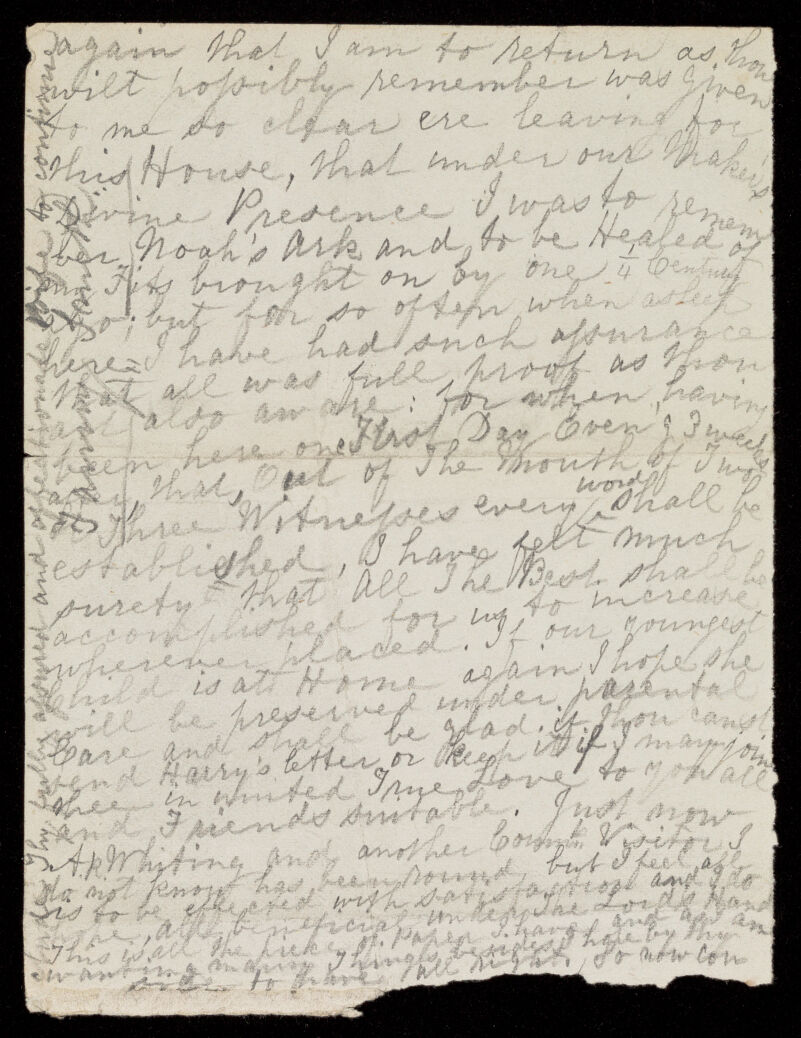 again that I am to return as thou
wilt possibly remember was given
to me so clear ere leaving for
this House, that under our Maker's
Divine Presence I was to remem
ber Noah's Ark and to be Healed of
my Fits brought on by one 1/4 Century
ago; but for so often when asleep
here I have had such assurance
that all was full proof as thou
art also aware: for when, having
been here one First Day Even g 3 weeks
after, that, Out of The Mouth of Two
or Three Witnesses every word shall be
established, I have felt much
surety that All The Best shall be
accomplished for us, to increase
wherever placed. If our youngest
Child is at Home again I hope she
will be preserved under parental
Care and shall be glad if thou canst
send Harry's letter or keep it if I may join
thee in united True Love to you all
and Friends suitable. Just now
A. R. Whiting and another Com Visitor I
do not know has been round, but I feel all
is to be effected with satisfaction and do
beneficial under The Lord's Hand
This is all the piece of paper I have and as am
wanting many Things besides hope by thy
to have all right, so now con
clude Thy fully assured and affectionate Wife to continue